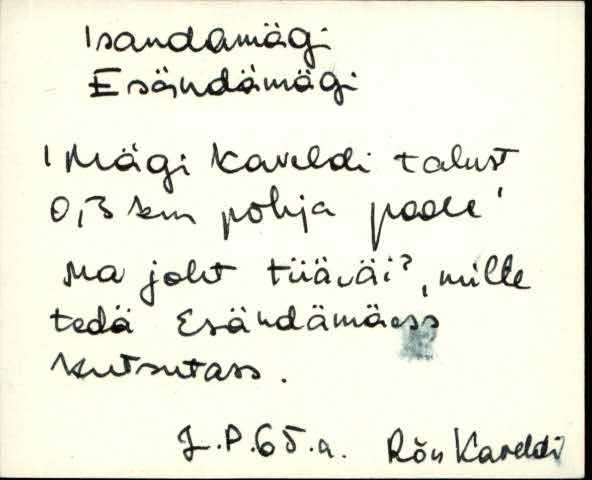 Isandamägi
Esändämägi
'Mägi Kaveldi talust
0,3 km põhja poole'
Ma joht tiiäväi?, mille
tedä Esändämäess
kutsutass.
J.P. 65.a. Rõu Kaveldi